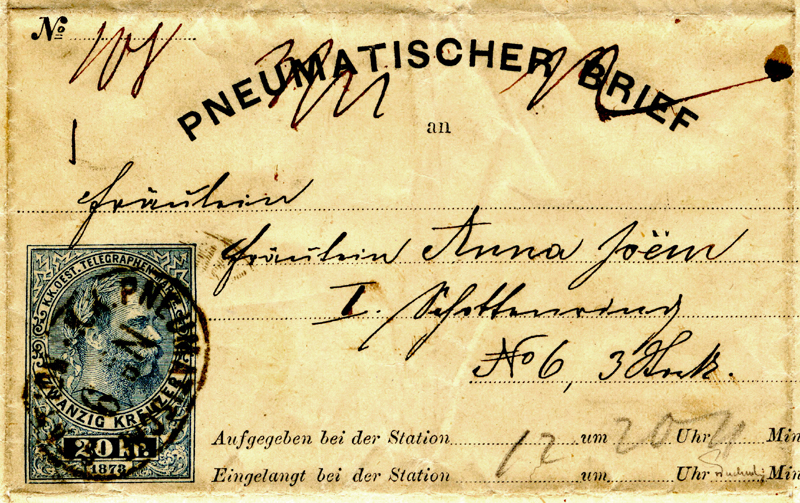 No 108
PNEUMATISCHER BRIEF
an
Fräulein
Fräulein Anna Joëm
I. Schottenring
No 6, 3 Stock.
K.K. OEST. TELEGRAPHEN
ZWANZIG KREUZER
20 kr.
1873
Aufgegeben bei der Station 12 um 20 Uhr Min
Eingelangt bei der Station um Uhr Min